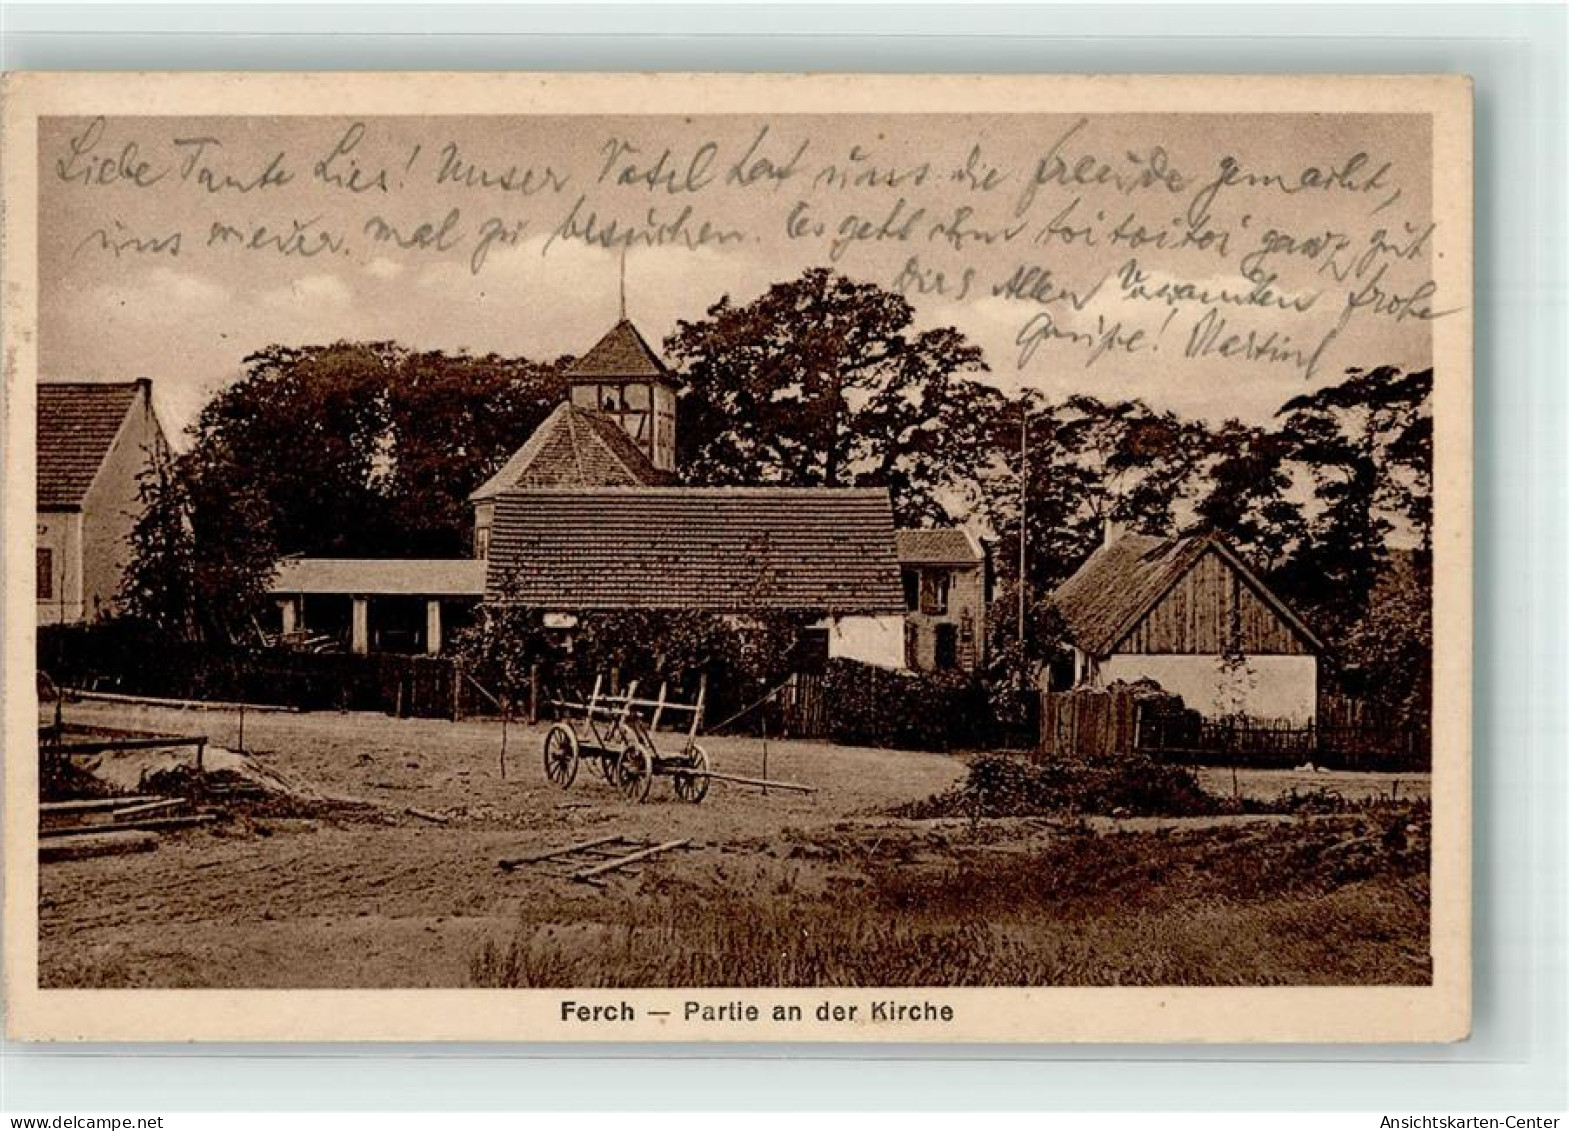 Liebe Tante Lies! Unser Vatel hat uns die Freude gemacht,
uns wieder mal zu besuchen. Es geht ihm toi toi toi ganz gut.
Dir & Allen frohe
Grüße! Martin
Ferch — Partie an der Kirche
Ansichtskarten-Center